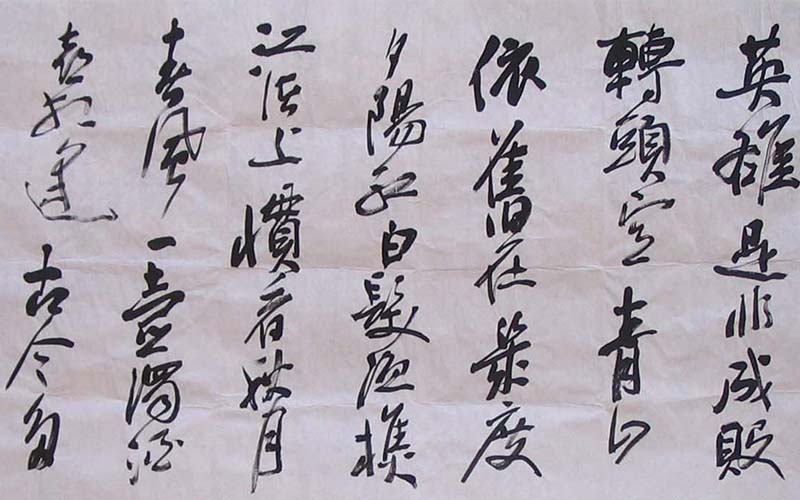 英雄是非成敗
轉頭空青山
依舊在幾度
夕陽紅白髮漁樵
江渚上慣看秋月
春風一壺濁酒
喜相逢古今多